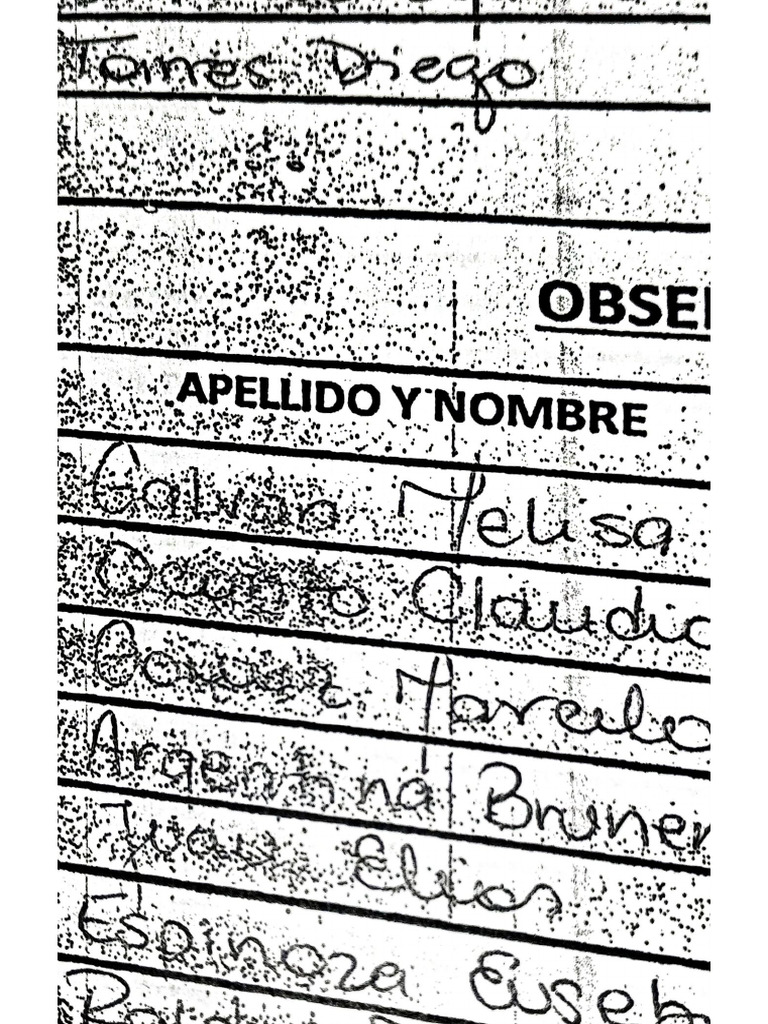 Torres Diego
OBSE
APELLIDO Y NOMBRE
Galvan Melisa
Ocanto Claudia
Gomez Marcelo
Argentina Bruner
Juan Elias
Espinoza Euseb